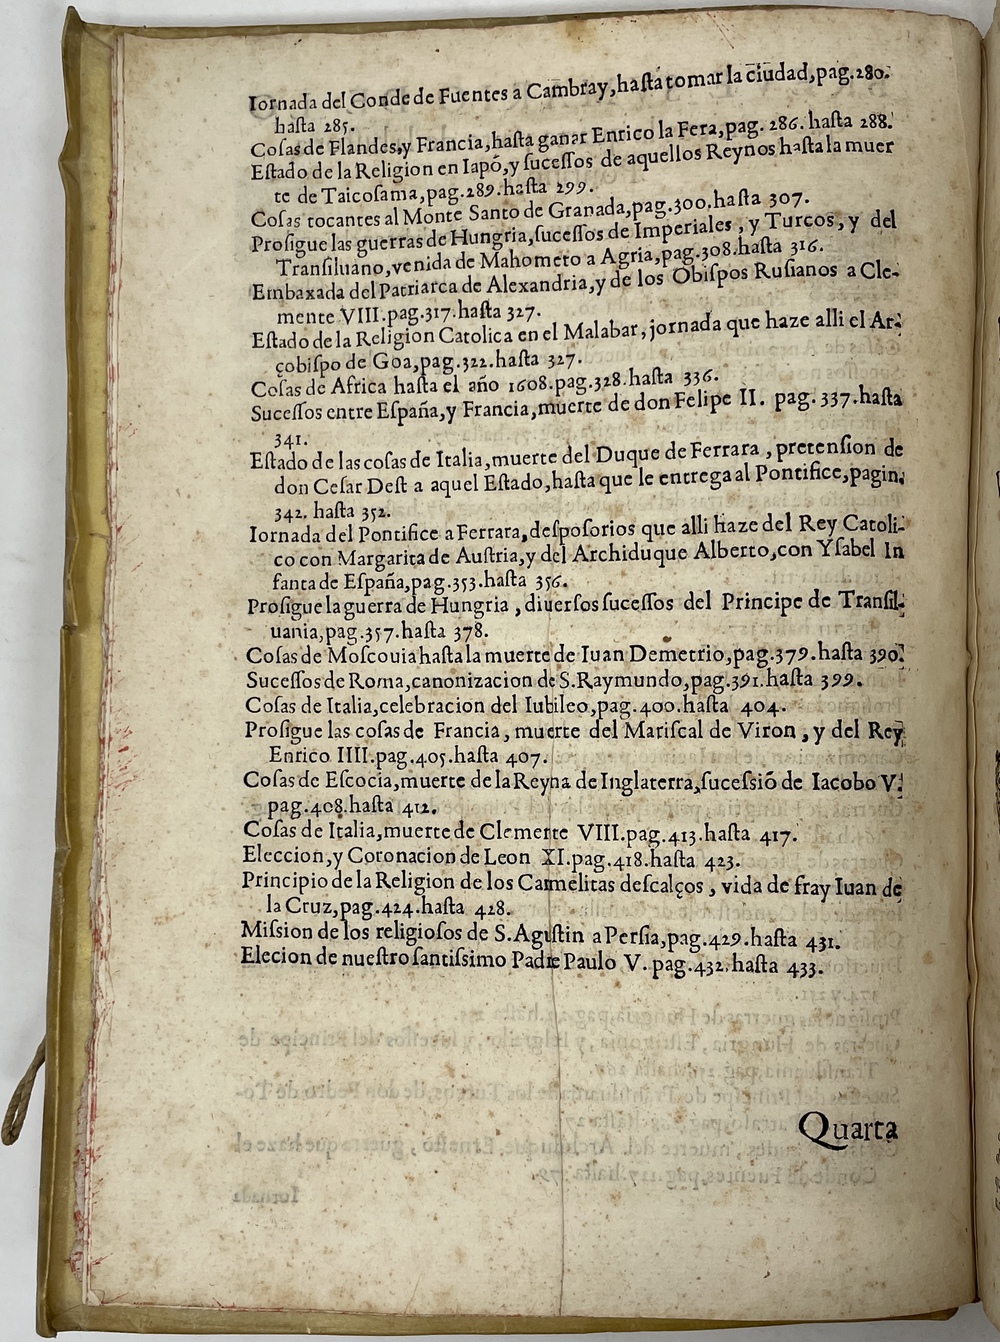 Iornada del Conde de Fuentes a Cambray, hasta tomar la ciudad, pag.280.
hasta 285.
Cosas de Flandes, y Francia, hasta ganar Enrico la Fera, pag. 286. hasta 288.
Estado de la Religion en Iapõ, y sucessos de aquellos Reynos hasta la muer
te de Taicosama, pag.289.hasta 299.
Cosas tocantes al Monte Santo de Granada, pag.300.hasta 307.
Prosigue las guerras de Hungria, sucessos de Imperiales, y Turcos, y del
Transiluano, venida de Mahometo a Agria, pag.308.hasta 316.
Embaxada del Patriarca de Alexandria, y de los Obispos Rusianos a Cle-
mente VIII.pag.317.hasta 327.
Estado de la Religion Catolica en el Malabar, jornada que haze alli el Ar-
çobispo de Goa, pag.322.hasta 327.
Cosas de Africa hasta el año 1608.pag.328.hasta 336.
Sucessos entre España, y Francia, muerte de don Felipe II. pag.337.hasta
341.
Estado de las cosas de Italia, muerte del Duque de Ferrara, pretension de
don Cesar Dest a aquel Estado, hasta que le entrega al Pontifice, pagin.
342. hasta 352.
Iornada del Pontifice a Ferrara, desposorios que alli haze del Rey Catoli-
co con Margarita de Austria, y del Archiduque Alberto, con Ysabel In
fanta de España, pag.353.hasta 356.
Prosigue la guerra de Hungria, diuersos sucessos del Principe de Transil-
uania, pag.357.hasta 378.
Cosas de Moscouia hasta la muerte de Iuan Demetrio, pag.379.hasta 390.
Sucessos de Roma, canonizacion de S.Raymundo, pag.391.hasta 399.
Cosas de Italia, celebracion del Iubileo, pag.400.hasta 404.
Prosigue las cosas de Francia, muerte del Mariscal de Viron, y del Rey
Enrico IIII.pag.405.hasta 407.
Cosas de Escocia, muerte de la Reyna de Inglaterra, sucessiõ de Iacobo V.
pag.408.hasta 412.
Cosas de Italia, muerte de Clemente VIII.pag.413.hasta 417.
Eleccion, y Coronacion de Leon XI.pag.418.hasta 423.
Principio de la Religion de los Carmelitas descalços, vida de fray Iuan de
la Cruz, pag.424.hasta 428.
Mission de los religiosos de S.Agustin a Persia, pag.429.hasta 431.
Elecion de nuestro santissimo Padre Paulo V. pag.432.hasta 433.
Quarta